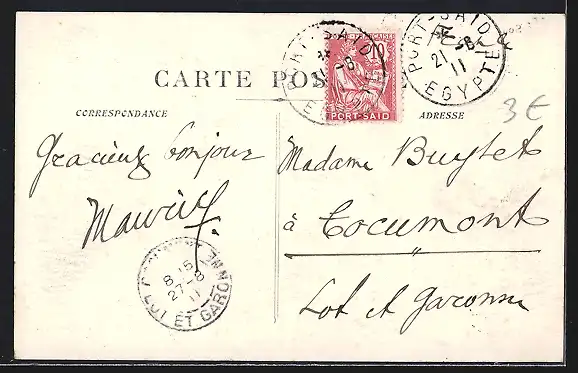 CARTE POS
CORRESPONDANCE
ADRESSE
10
PORT-SAID
PORT-SAID
21-8
11
EGYPTE
3 €
Gracieux bonjour
Maurice
Madame Buytet
à Cocumont
Lot et Garonne
8 15
27-8
11
LOT ET GARONNE